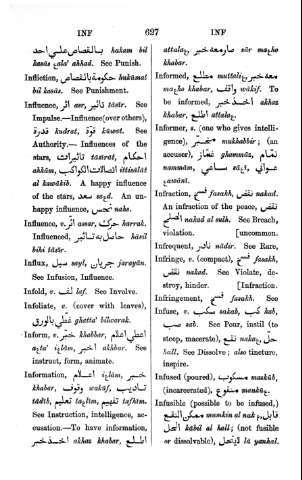 INF 627 INF
بالقصاص علي احد hakam bil
kasâs ala' ahhad. See Punish.
Infliction, حكومة بالقصاص hukûmat
bil kasâs. See Punishment.
Influence, اثر aer, تاثير tâsîr. See
Impulse.—Influence(over others),
قدرة kudrat, قوة kûwat. See
Authority.— Influences of the
stars, تاثيرات tasîrat, احكام
ahkâm, اتصالات الكواكب ittisâlât
al kawâkib. A happy influence
of the stars, سعد sad. An un-
happy influence, نحس nahs.
Influence, v. اثر amar, حرك harrak.
Influenced, حاصل به تاثير hâsil
bihi tâsîr.
Influx, سيل seyl, جريان jarayân.
See Infusion, Influence.
Infold, v. لف laf. See Involve.
Infoliate, v. (cover with leaves),
غطي بالورق ghatta' bilwarak.
Inform, v. خبر khabbar, اعطي اعلام
ata' ilâm, اخبر akhbar. See
instruct, form, animate.
Information, اعلام ilâm, خبر
khabar, وقوف wakûf, تاديب
tâdîb, تعليم talîm, تفهيم tafhîm.
See Instruction, intelligence, ac-
cusation.—To have information,
اطلع اخذ خبر akhaz khabar,
attala, صار معه خبر sâr maho
khabar.
Informed, مطلع muttali, معه خبر
maho khabar, واقف wâkif. To
be informed, اخذ خبر akhaz
khabar, اطلع attala.
Informer, s. (one who gives intelli-
gence), مخبر mukhabbir; (an
accuser), غماز ghammâz, نمام
nammâm, ساعي sâî, عواني
awânî.
Infraction, فسخ fasakh, نقض nakad.
An infraction of the peace, نقض
الصلح nakad al sulh. See Breach,
violation. [uncommon.
Infrequent, نادر nâdir. See Rare,
Infringe, v. (compact), فسخ fasakh,
نقض nakad. See Violate, de-
stroy, hinder. [Infraction.
Infringement, فسخ fasakh. See
Infuse, v. سكب sakab, كب kab,
صب sab. See Pour, instil (to
steep, macerate), نقع naka, حل
hall. See Dissolve; also tincture,
inspire.
Infused (poured), مسكوب maskûb,
(incarcerated), منقوع menkû.
Infusible (possible to be infused,)
ممكن النقع mumkin al nak, قابل
الحل kâbil al hall; (not fusible
or dissolvable), لا ينحل lâ yanhal.